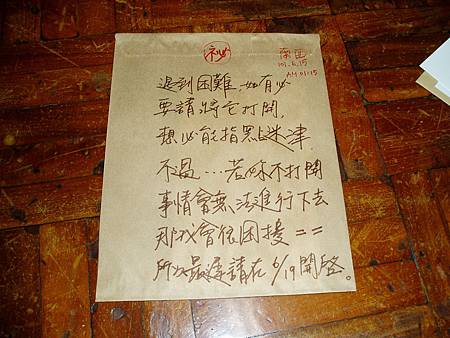 祕
101.6.15
AM 01:15
遇到困難,如有必
要請將它打開,
想必能指點迷津
不過…若妳不打開
事情會無法進行下去
那我會很困擾==
所以最遲請在6/19開啟。